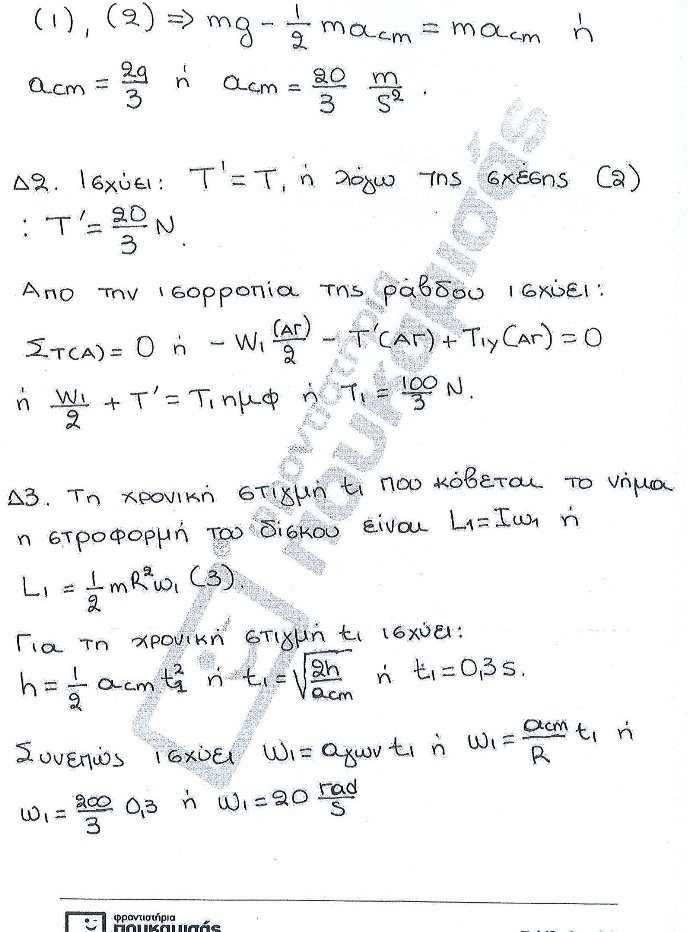 (1), (2) ⇒ mg - 1/2 m acm = m acm ή
acm = 2g/3 ή acm = 20/3 m/s².
Δ2. Ισχύει: Τ' = Τ, ή λόγω της σχέσης (2)
: Τ' = 20/3 N.
Απο την ισορροπία της ράβδου ισχύει:
Στ(Α) = 0 ή - W1 (ΑΓ)/2 - Τ'(ΑΓ) + Τ1y (ΑΓ) = 0
ή W1/2 + Τ' = Τ1 ημφ ή Τ1 = 100/3 N.
Δ3. Τη χρονική στιγμή t1 που κόβεται το νήμα
η στροφορμή του δίσκου είναι L1 = Iω1 ή
L1 = 1/2 mR²ω1 (3).
Για τη χρονική στιγμή t1 ισχύει:
h = 1/2 acm t1² ή t1 = √(2h/acm) ή t1 = 0,3 s.
Συνεπώς ισχύει ω1 = αγων t1 ή ω1 = acm/R t1 ή
ω1 = 200/3 0,3 ή ω1 = 20 rad/s
φροντιστήρια
πουκαμισάς
φροντιστήρια
πουκαμισάς